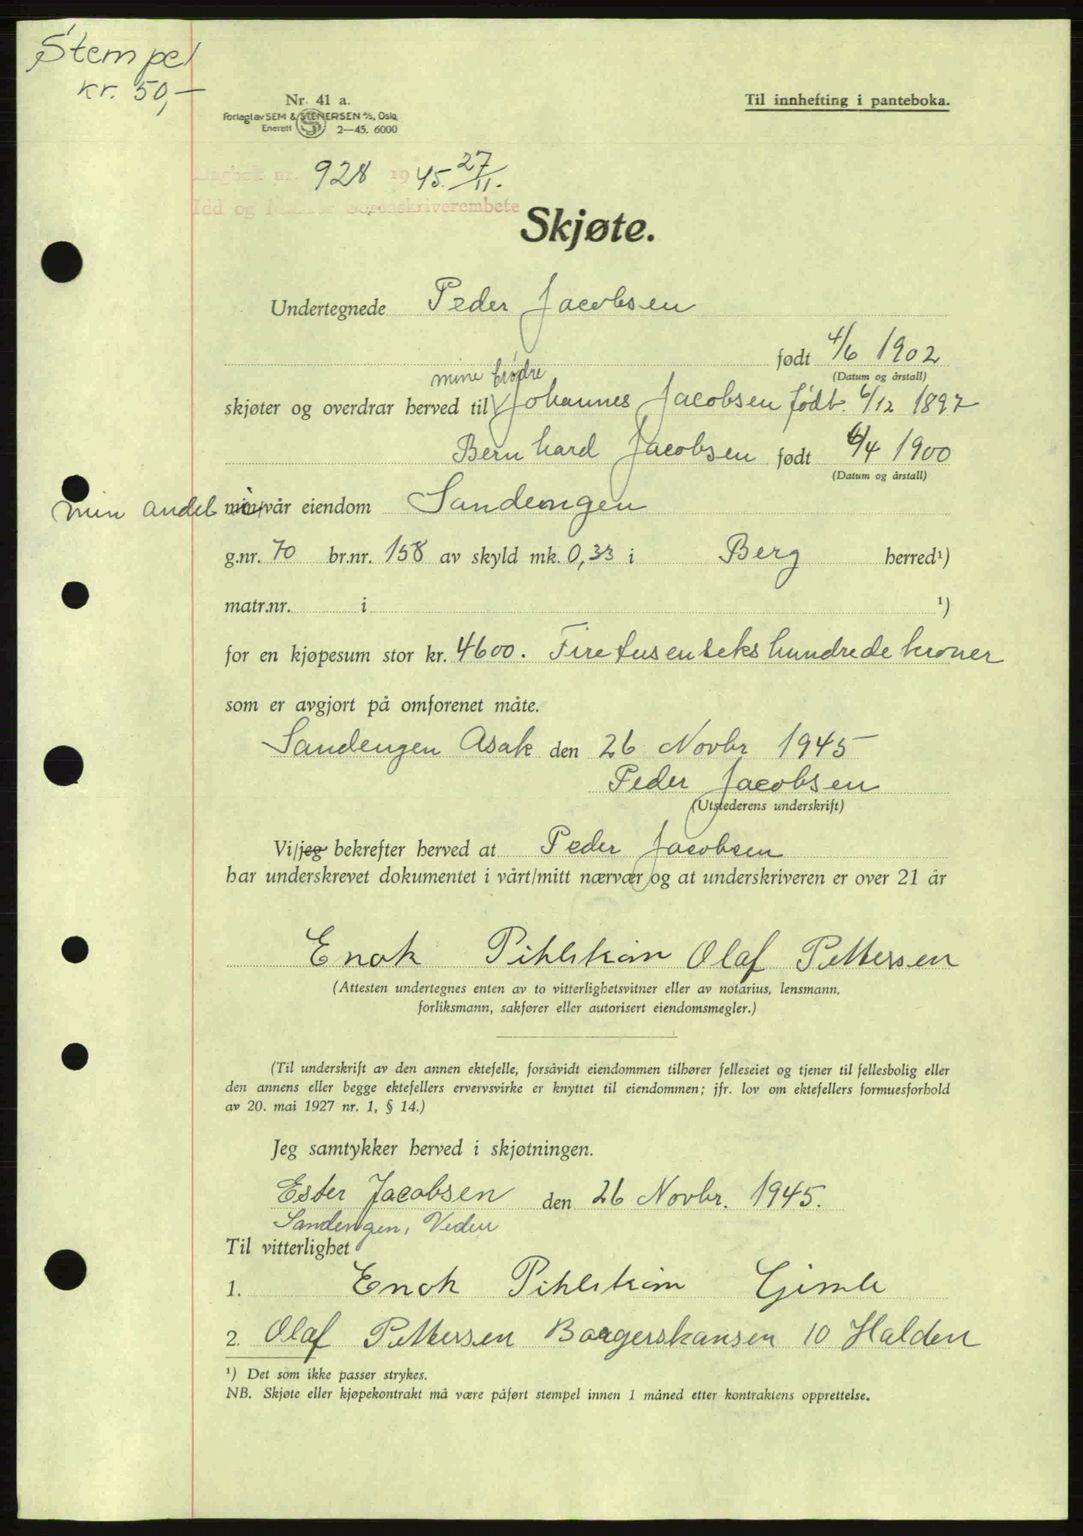 Stempel
kr. 50,-
Nr. 41 a.
Forlagt av SEM & STENERSEN A/S, Oslo
Enerett 2—45. 6000
Til innhefting i panteboka.
Dagbok nr. 928 1945. 27/11.
Idd og Marker sorenskriverembete
Skjøte.
Undertegnede Peder Jacobsen
født 4/6 1902
(Datum og årstall)
mine brødre
skjøter og overdrar herved til Johannes Jacobsen født. 6/12 1897
Bernhard Jacobsen født 6/4 1900
(Datum og årstall)
min andel i min/vår eiendom Sandengen
g.nr. 70 br.nr. 158 av skyld mk. 0,33 i Berg herred¹)
matr.nr. i ¹)
for en kjøpesum stor kr. 4600. Firetusensekshundrede kroner
som er avgjort på omforenet måte.
Sandengen Asak den 26 Novbr 1945
Peder Jacobsen
(Utstederens underskrift)
Vi/jeg bekrefter herved at Peder Jacobsen
har underskrevet dokumentet i vårt/mitt nærvær og at underskriveren er over 21 år
Enok Pihlstrøm Olaf Pettersen
(Attesten undertegnes enten av to vitterlighetsvitner eller av notarius, lensmann,
forliksmann, sakfører eller autorisert eiendomsmegler.)
(Til underskrift av den annen ektefelle, forsåvidt eiendommen tilhører felleseiet og tjener til fellesbolig eller
den annens eller begge ektefellers ervervsvirke er knyttet til eiendommen; jfr. lov om ektefellers formuesforhold
av 20. mai 1927 nr. 1, § 14.)
Jeg samtykker herved i skjøtningen.
Ester Jacobsen den 26 Novbr. 1945.
Sandengen, Veden
Til vitterlighet
1. Enok Pihlstrøm Gimle
2. Olaf Pettersen Borgerskansen 10 Halden
¹) Det som ikke passer strykes.
NB. Skjøte eller kjøpekontrakt må være påført stempel innen 1 måned etter kontraktens opprettelse.